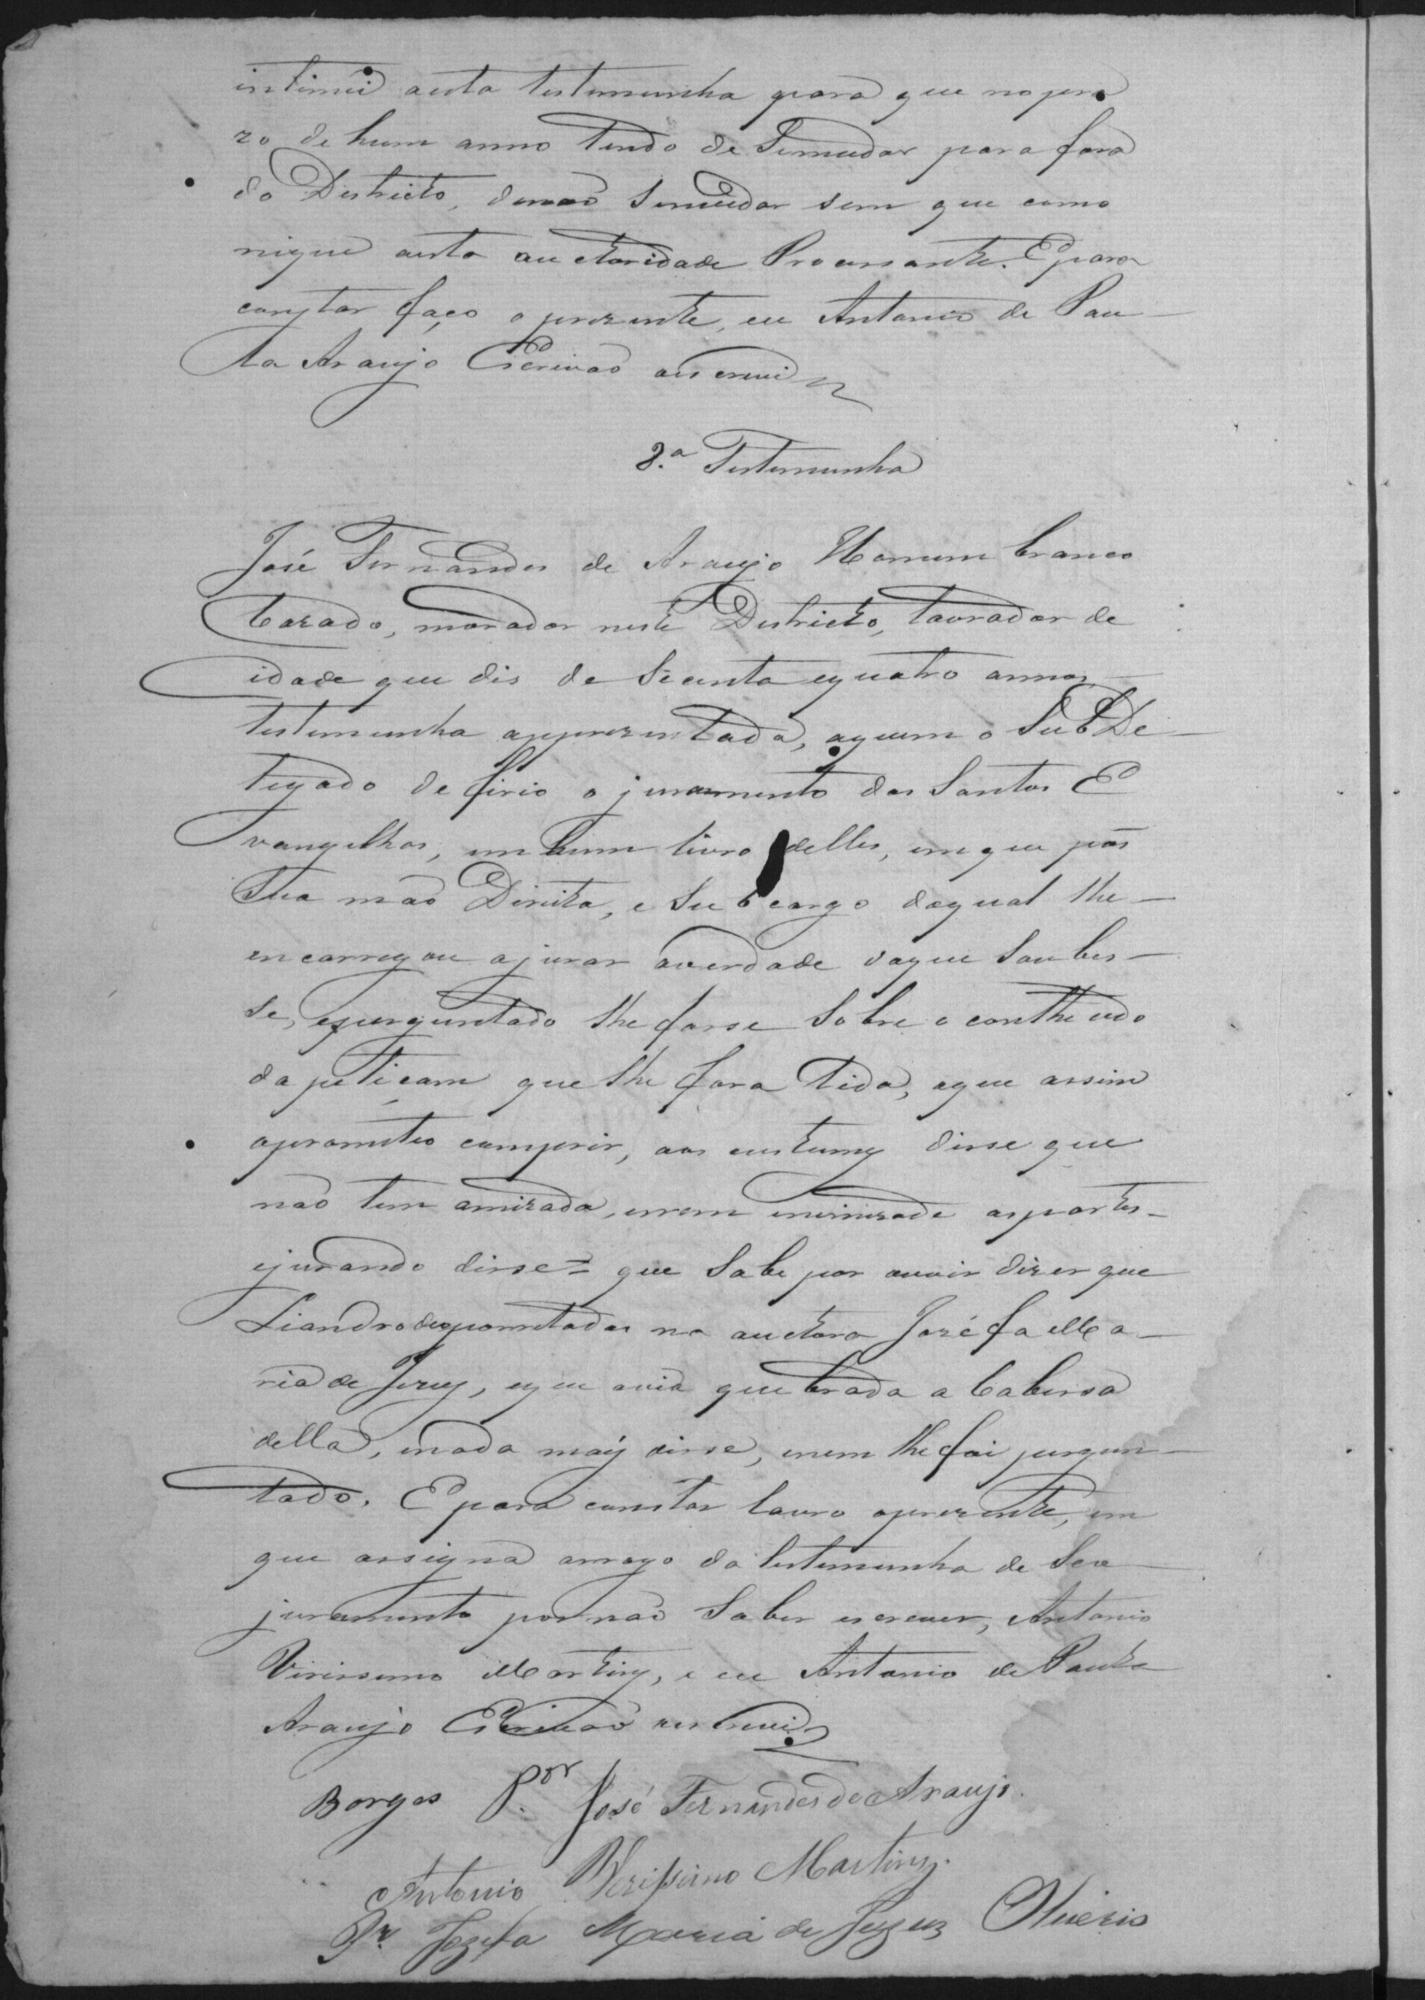 intimei aesta testemunha para que no pra
zo de hum anno tendo de Semudar para fora
do Districto, denaõ Semudar sem que como
nique aesta auctoridade Procesante. E para
constar faço o prezente, eu Antonio de Pau
la Araujo Escrivaõ aescrevi
8.ª Testemunha
José Fernandes de Araujo Homem branco
Cazado, morador neste Districto, lavrador de
idade que dis de Secenta equatro annos
testemunha apprezentada, aquem o SubDe
legado deferio o juramento dos Santos E
vangelhos, em hum livro delles, em que pôs
Sua maõ Direita, e Subcargo doqual lhe
encarregou ajurar averdade doque Soubes
se, eperguntado lhe fosse Sobre o contheudo
da petiçam que lhe fora lida, eque assim
oprometeo comprir, aos custumes disse que
naõ tem amizada, enem enimizade aspartes
ejurando disse = que Sabe por ouvir dizer que
Liandro deo porretadas na auctora Jozéfa Ma
ria de Jezus, eque avia quebrada a Cabessa
della, enada mais disse, enem lhe foi pergun
tado. E para constar lavro oprezente, em
que assigna arrogo da testemunha de Seu
juramento por naõ Saber escrever, Antonio
Virissimo Martins, e eu Antonio de Paula
Araujo Escrivaõ aescrevi
Borges P.or José Fernandes de Araujo.
Antonio Verissimo Martins.
Pr. Jozefa Maria de Jezuz Oliveira